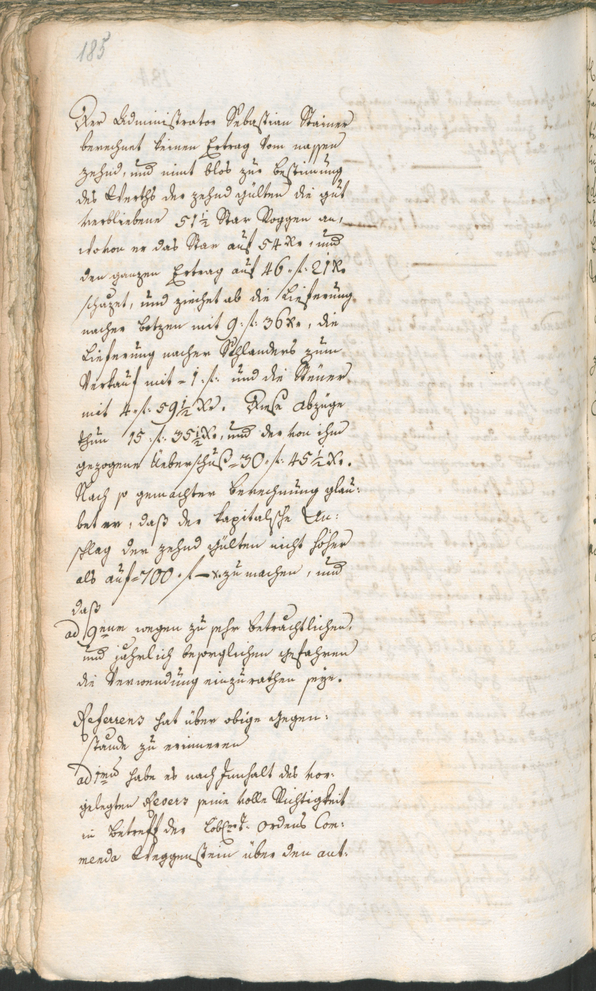 185
Der Administrator Sebastian Stainer
berechnet keinen Ertrag vom nassen
zehnd, und nimt blos zur bestimung
des Werths der zehnd gülten die gut
verbliebene 51½ Star Roggen an,
wovon er das Star auf 54 Xr, und
den ganzen Ertrag auf 46. f. 21 Xr
schäzet, und ziechet ab die Lieferung
nacher botzen mit 9. f. 36 Xr, die
Lieferung nacher Schlanders zum
Verkauf mit - 1. f. und die Steuer
mit 4. f. 59½ Xr. Diese Abzüge
thun 15. f. 35½ Xr, und der von ihm
gezogene Ueberschuß = 30. f. 45½ Xr.
Nach so gemachter berechnung glau:
bet er, daß der kapitalsche An:
schlag der zehnd gülten nicht höher
als auf = 700. f. — x. zu machen, und
daß
ad 9num wegen zu sehr beträchtlichen,
und jährlich besorglichen gefahren
die Verwendung einzurathen seye.
Referens hat über obige gegen:
stände zu erinneren
ad 1mum habe es nach Innhalt des vor:
gelegten Revers seine volle Richtigkeit
in betreff der Ordens Com:
menda Weggenstein über den ant: